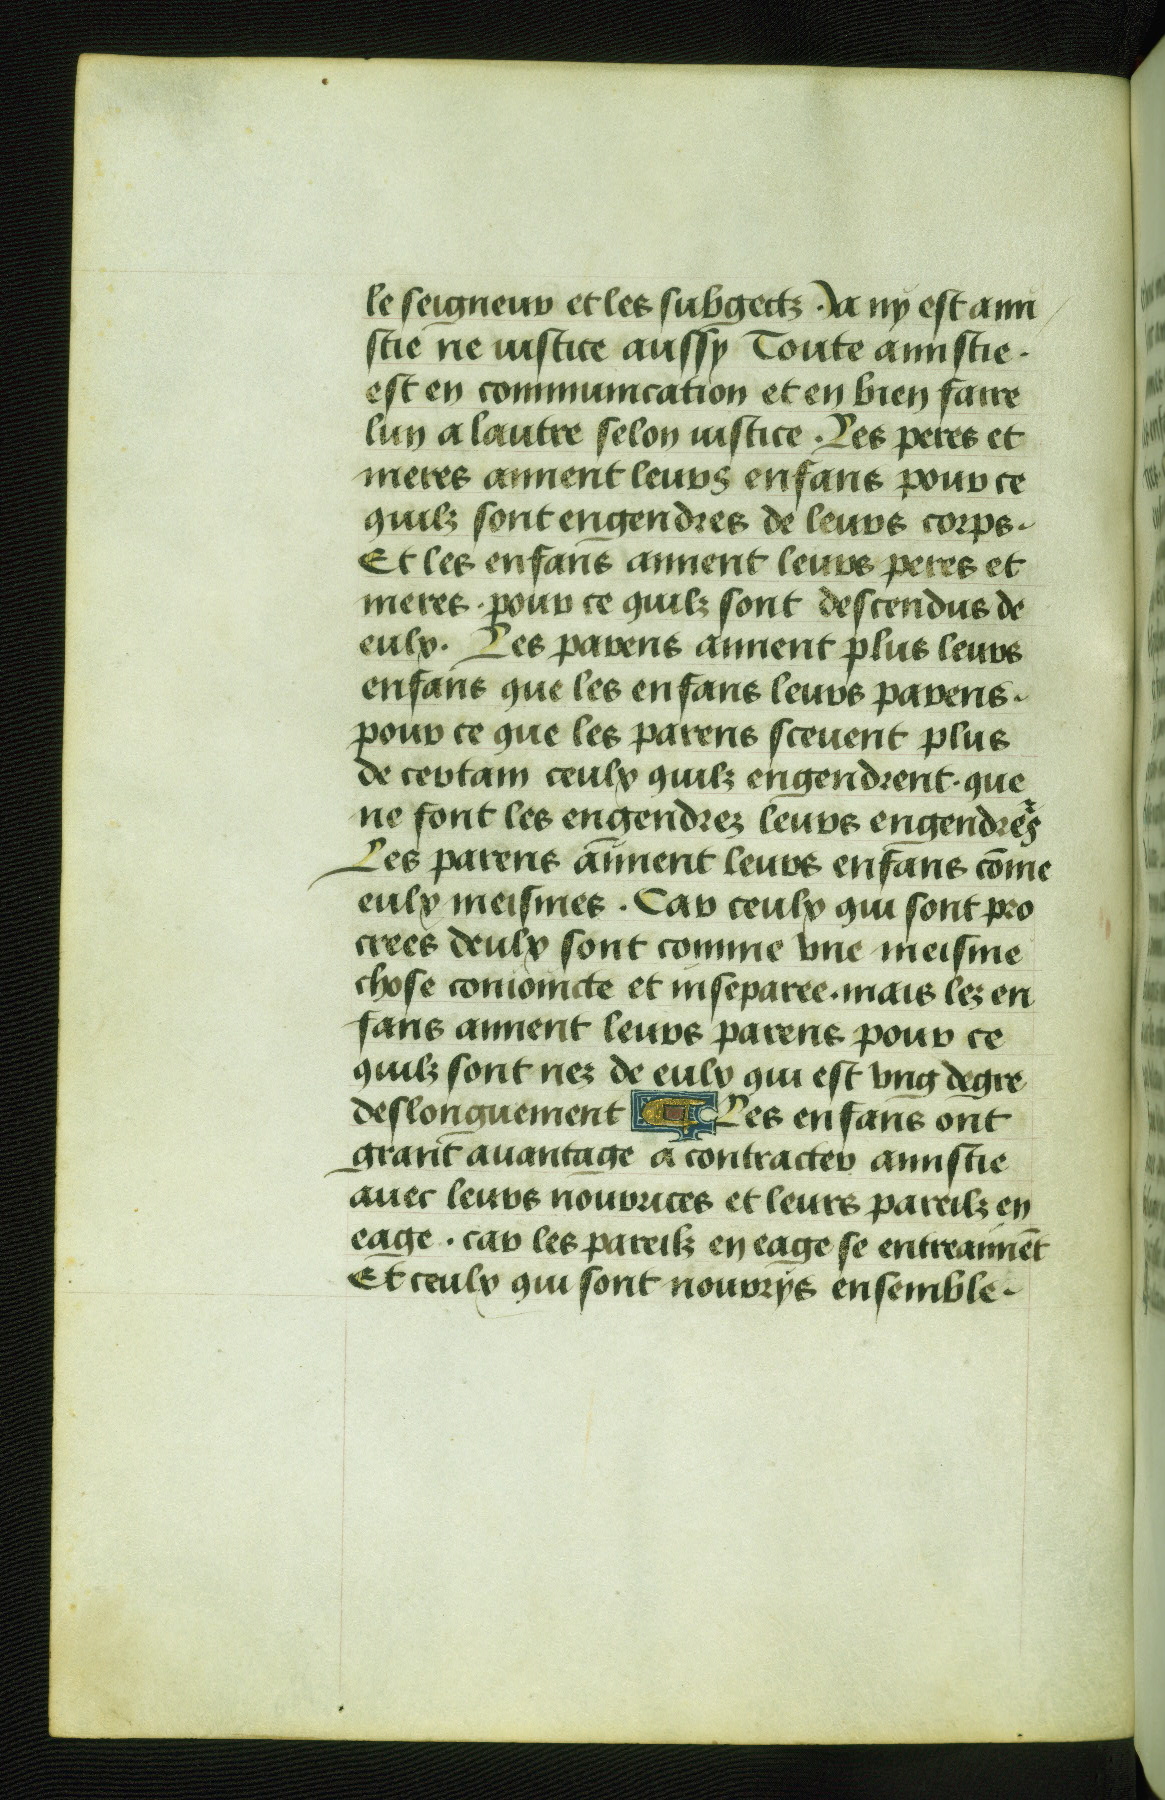 le seigneur et les subgectz . Ja ny est ami
stie ne iustice aussy Toute amistie .
est en communication et en bien faire
lun a lautre selon iustice . Les peres et
meres aiment leurs enfans pour ce
quilz sont engendres de leurs corps .
Et les enfans aiment leurs peres et
meres . pour ce quilz sont descendus de
eulx . Les parens aiment plus leurs
enfans que les enfans leurs parens .
pour ce que les parens sceuent plus
de certain ceulx quilz engendrent . que
ne font les engendrez leurs engendrer̃s
Les parens aiment leurs enfans cõme
eulx meismes . Car ceulx qui sont pro
crees deulx sont comme vne meisme
chose conioincte et inseparee . mais lez en
fans aiment leurs parens pour ce
quilz sont nez de eulx qui est vng degre
deslonguement Les enfans ont
grant auantage a contracter amistie
auec leurs nourrices et leurs pareilz en
eage . car les pareilz en eage se entreaimẽt
Et ceulx qui sont nourrys ensemble .